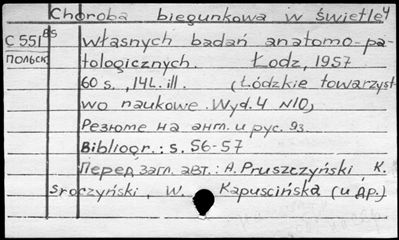 Choroba biegunkowa w świetle
C551 własnych badań anatomo-pa-
польск. tologicznych. Łodz, 1957
60 s., 14L. ill. (Łódzkie towarzyst
wo naukowe. Wyd. 4 N10)
Резюме на англ. и рус. яз.
Bibliogr.: s. 56-57
Перед загл. авт.: A. Pruszczyński, K.
Sroczyński, W. Kapuscińska (и др.)